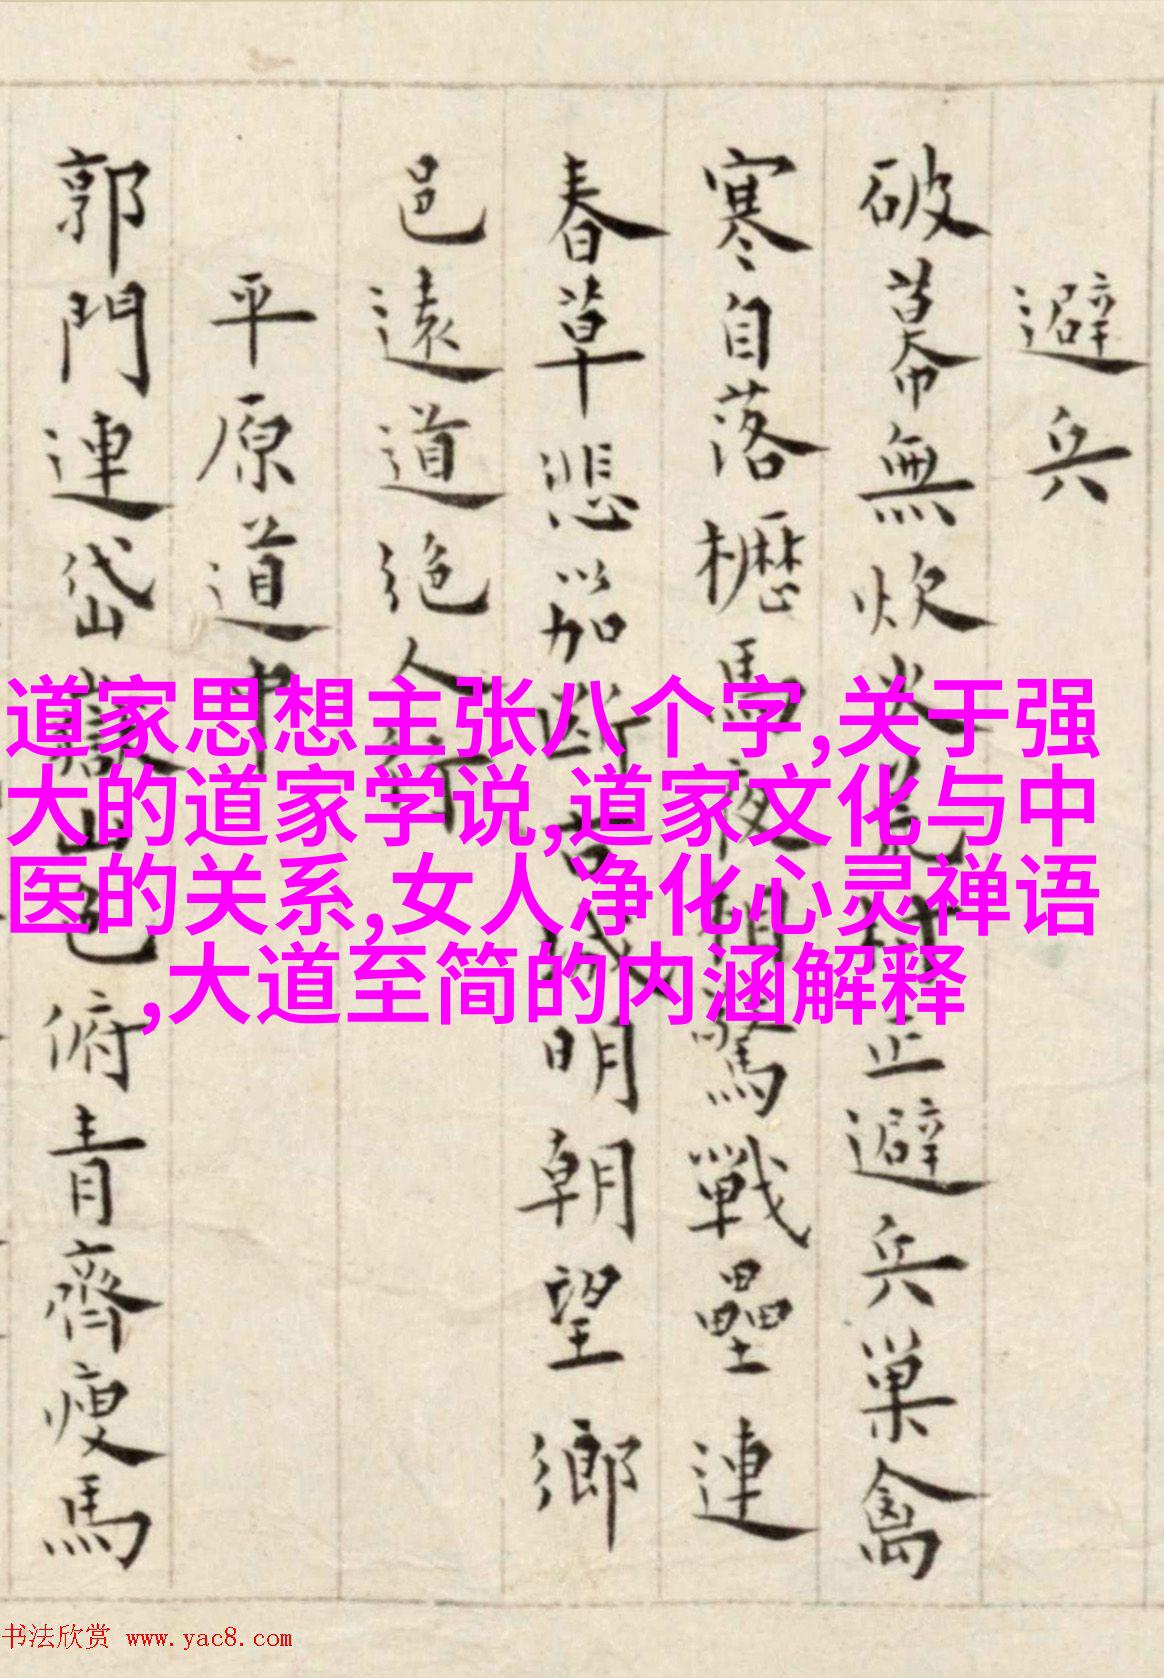 避兵
破幕無炊火荒村正避兵巢禽
寒自落櫪馬夜相驚戰壘連
春草悲笳斷古城明朝望鄉
邑遠道絶人行
平原道中
郭門連岱嶽山色俯青齊瘦馬
道家思想主张八个字,关于强
大的道家学说,道家文化与中
医的关系,女人净化心灵禅语
,大道至简的内涵解释
书法欣赏 www.yac8.com